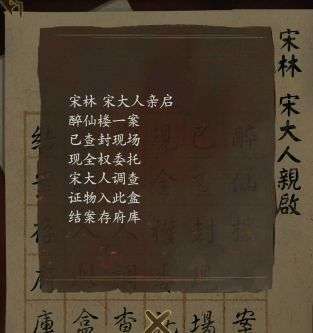 宋林 宋大人亲启
醉仙楼一案
已查封现场
现全权委托
宋大人调查
证物入此盒
结案存府库
宋林 宋大人親啟
醉仙 案
已 封 場
查
盒
結 存府庫